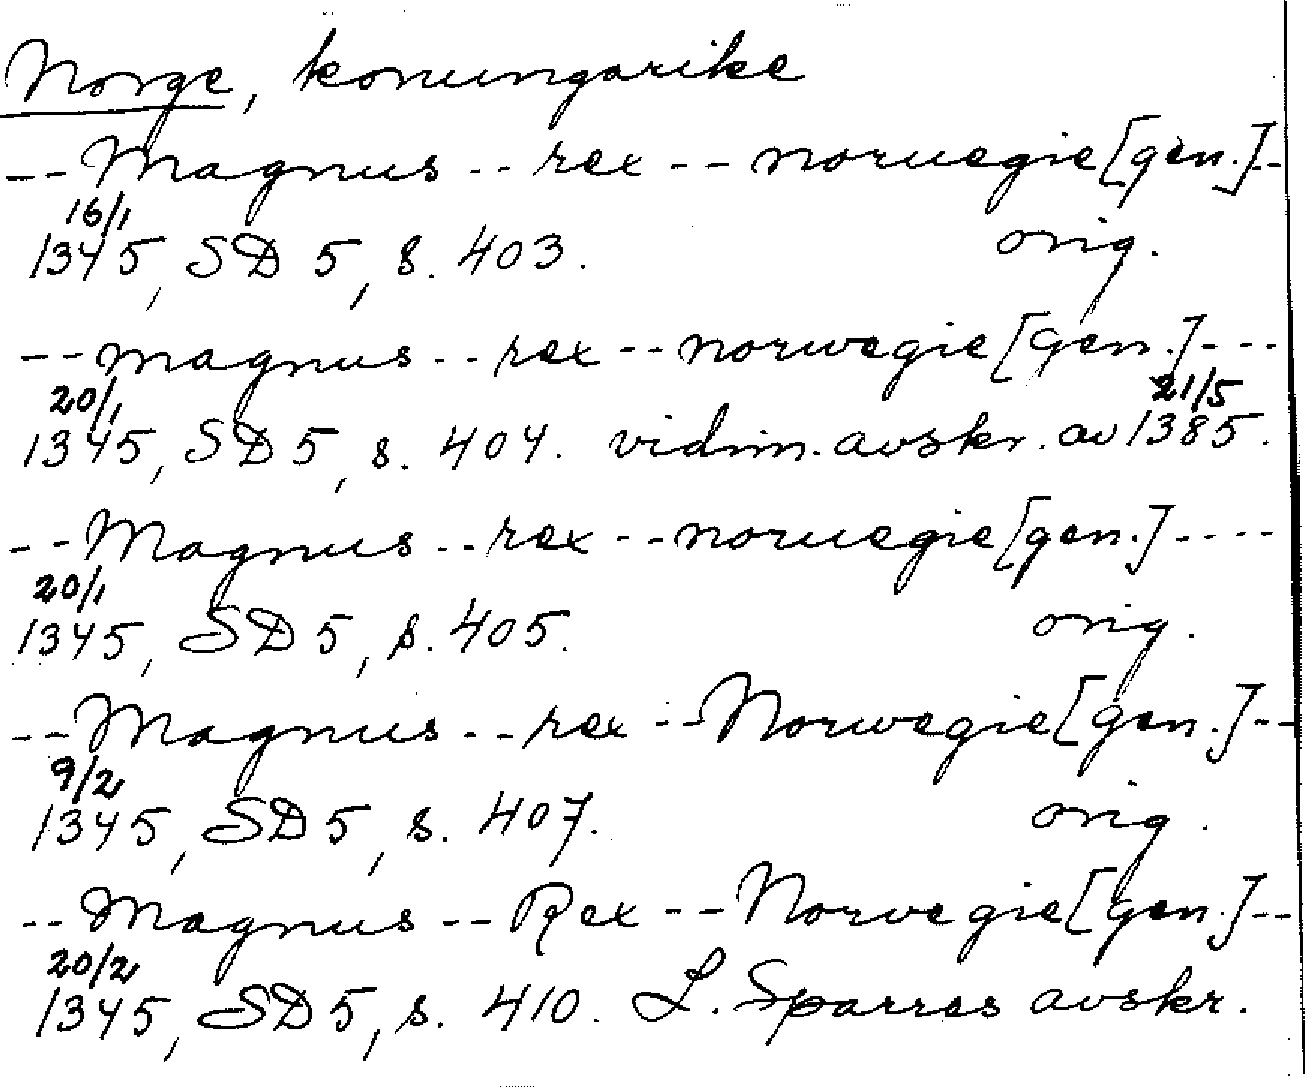 Norge, konungarike
-- Magnus -- rex -- noruegie [gen.] --
16/1
1345, SD 5, s. 403. orig.
-- magnus -- rex -- norwegie [gen.] ----
20/1 21/5
1345, SD 5, s. 404. vidim. avskr. av 1385.
-- Magnus -- rex -- noruegie [gen.] ----
20/1
1345, SD 5, s. 405. orig.
-- Magnus -- rex -- Norwegie [gen.] --
9/2
1345, SD 5, s. 407. orig.
-- Magnus -- Rex -- Norvegie [gen.] --
20/2
1345, SD 5, s. 410. L. Sparres avskr.